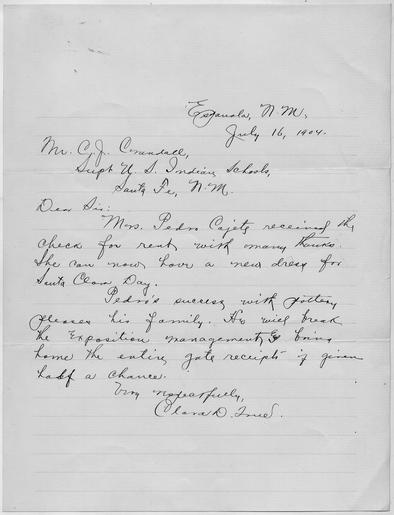 Espanola, N.M.,
July 16, 1904.
Mr. C.J. Crandall,
Supt U. S. Indian Schools,
Santa Fe, N.M.
Dear Sir:
Mrs. Pedro Cajete received the
check for rent with many thanks.
She can now have a new dress for
Santa Clara Day.
Pedro's success with pottery
pleases his family. He will break
the Exposition management & bring
home the entire gate receipts if given
half a chance.
Very respectfully,
Clara D. True.